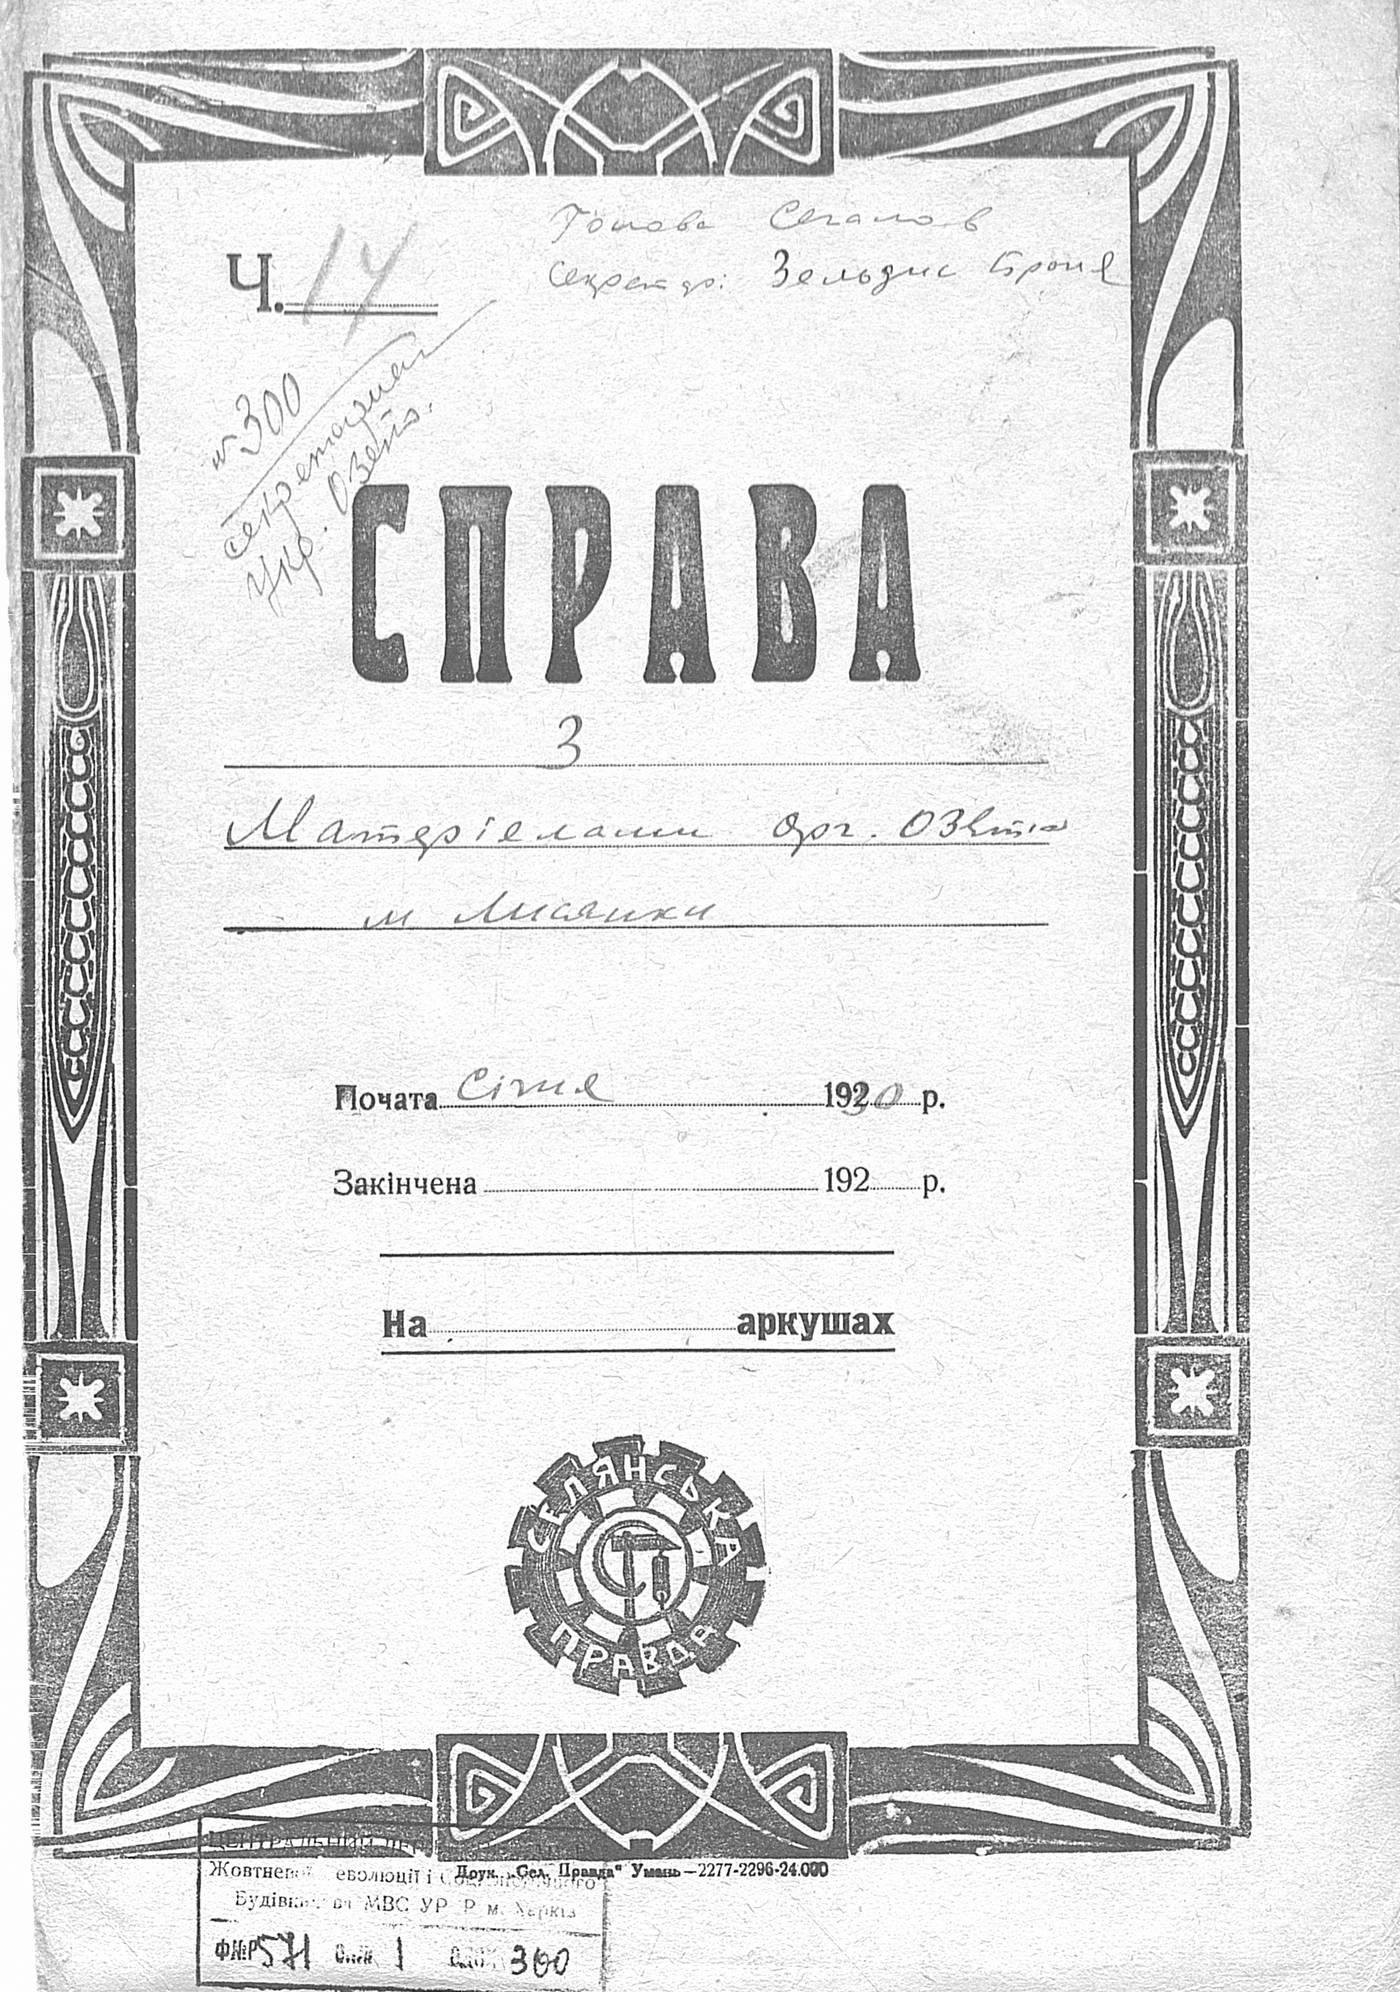 Голова Сегалов
Секретар: Зельдис Броня
Ч. 14
№ 300
секретариат
Укр. Озет.
СПРАВА
З
Матеріелами орг. ОЗЕТ'а
м Лисянки
Почата Січня 1930 р.
Закінчена 192 р.
На аркушах
СЕЛЯНСЬКА
ПРАВДА
Друк. „Сел. Правда" Умань—2277-2296-24.000
ЦЕНТРАЛЬНИЙ
Жовтневої революції і Соціялістичного
Будівництва МВС УРСР м. Харків
Ф№Р 571 опис 1 од.зб. 300